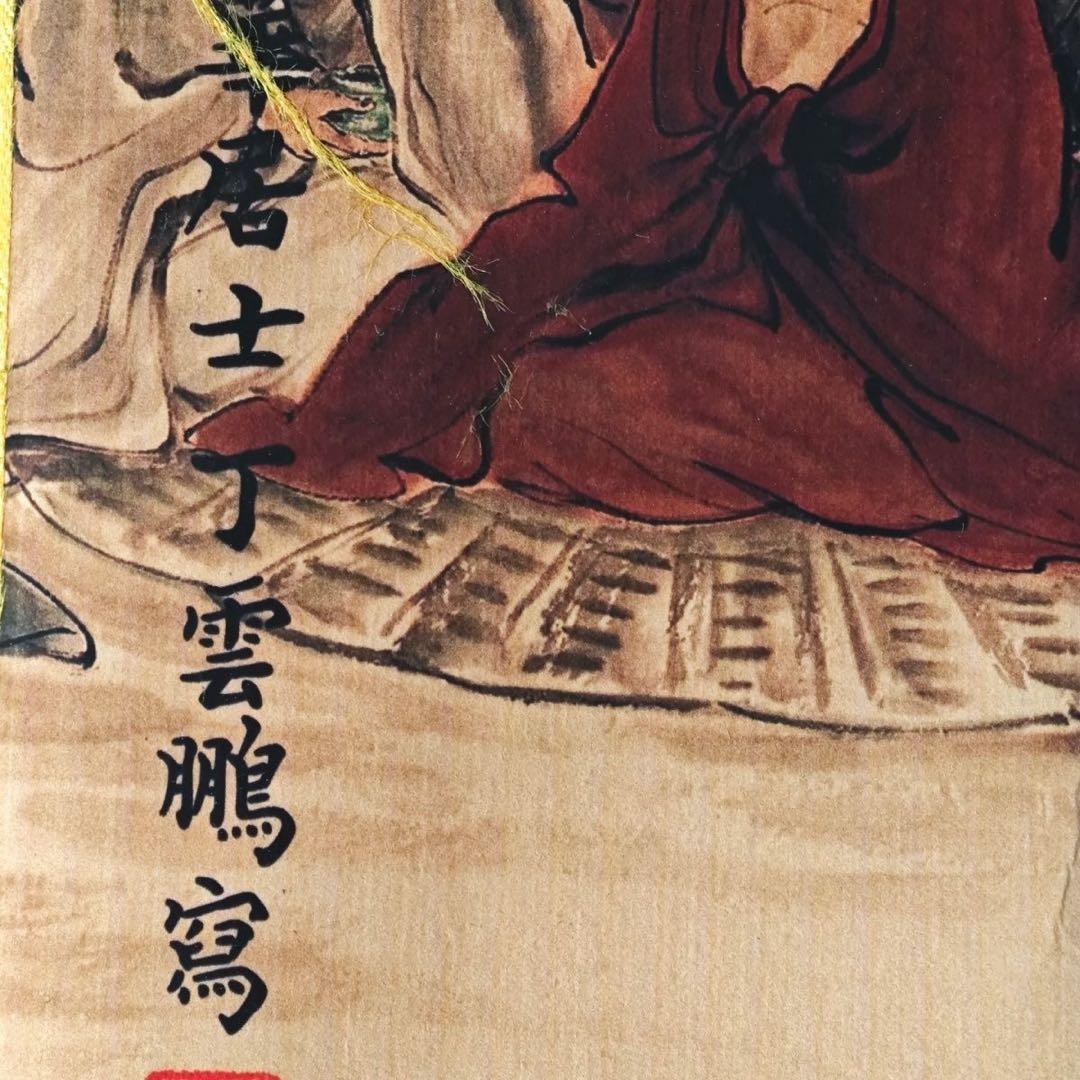 居士丁雲鵬寫